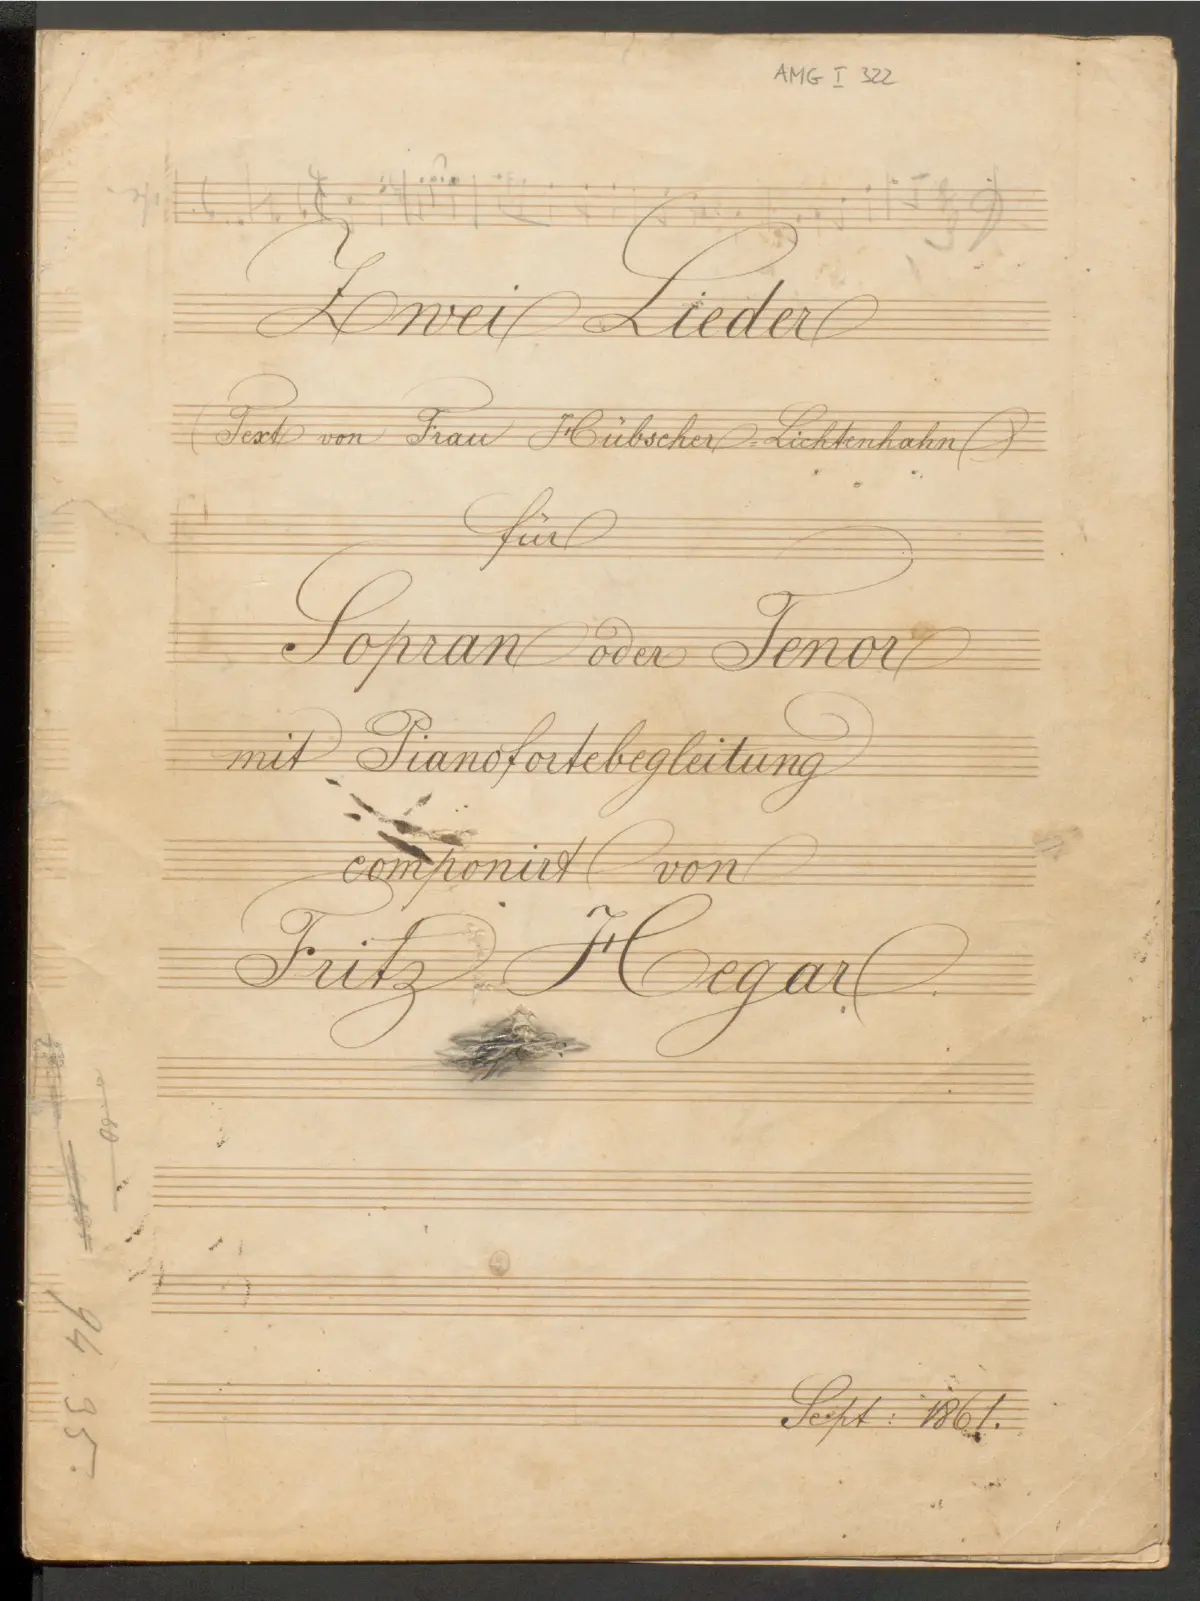 AMG I 322
Zwei Lieder
(Text von Frau Hübscher-Lichtenhahn)
für
Sopran oder Tenor
mit Pianofortebegleitung
componirt von
Fritz Hegar.
Sept: 1861.
94.35.